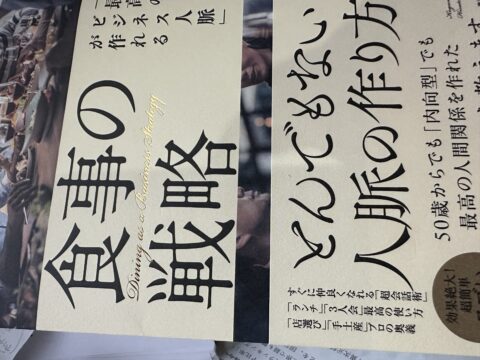 「最高の
ビジネス人脈」
が作れる
食事の
戦略
Dining as a Business Strategy
とんでもない
人脈の作り方
50歳からでも「内向型」でも
最高の人間関係を作れた
教えます
すぐに仲良くなれる「超会話術」
「ランチ」「3人会」最高の使い方
「店選び」「手土産」プロの奥義
効果絶大!
超簡単